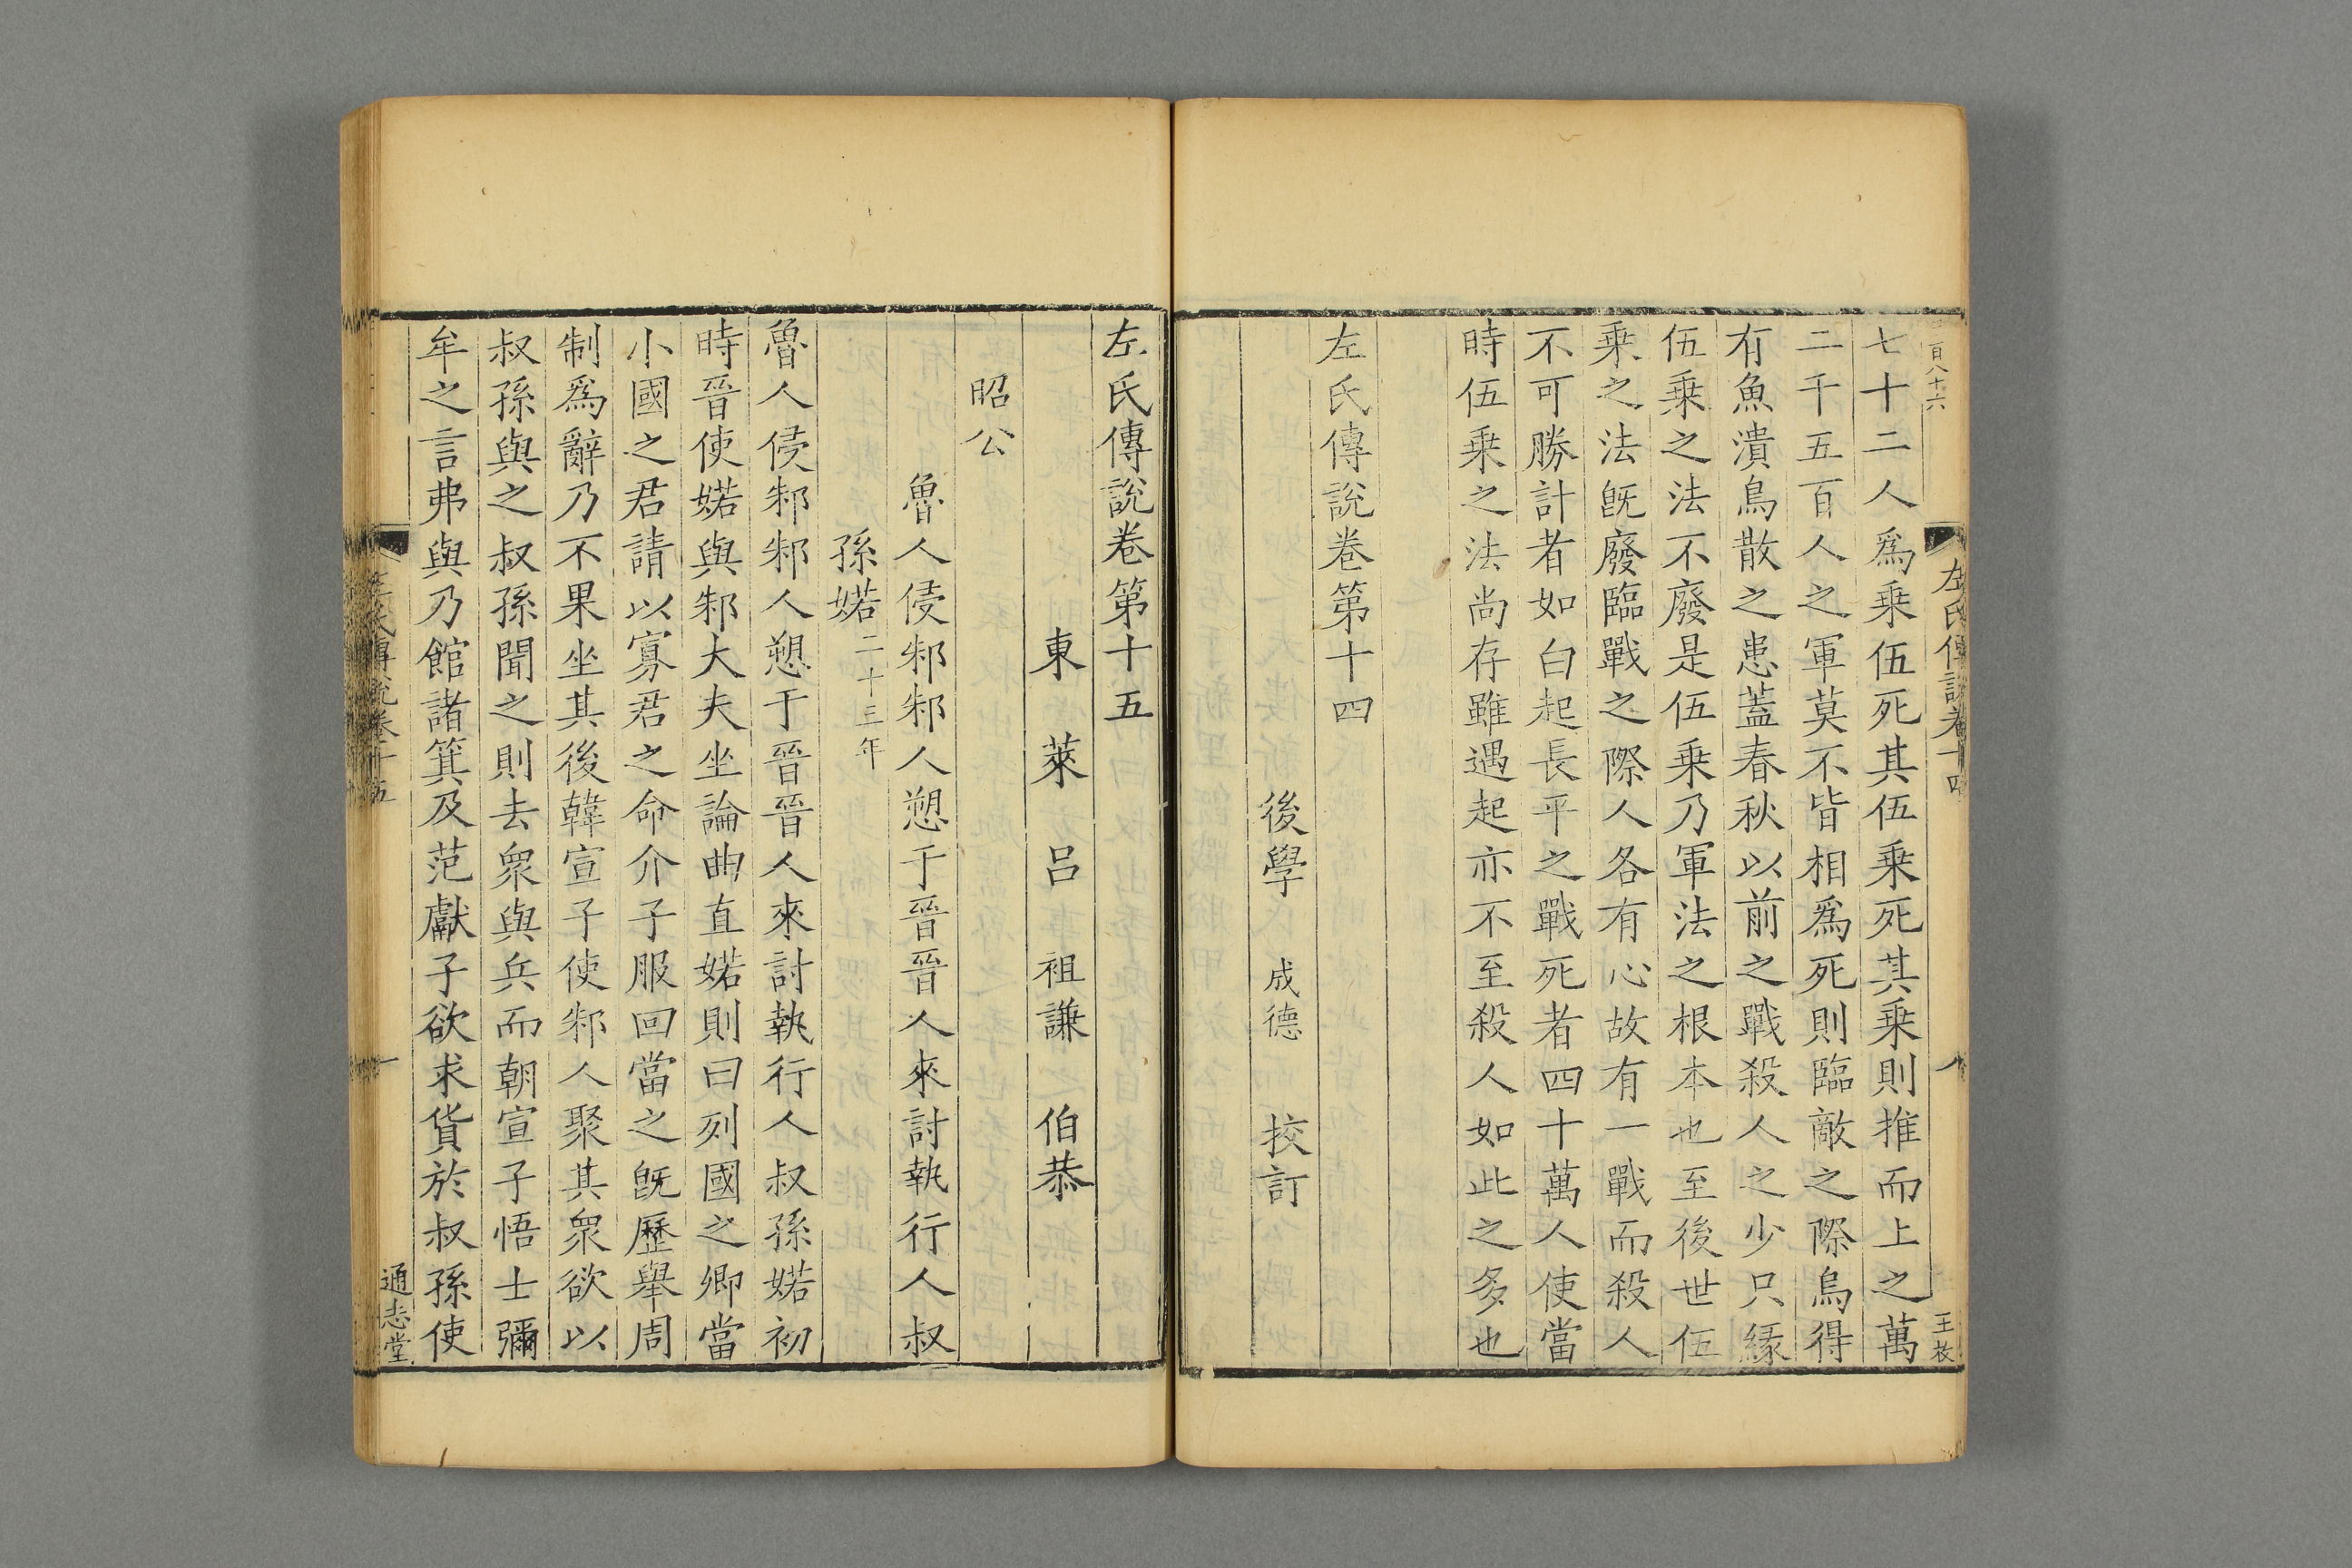 百八十六
左氏傳說卷十四
八
王枚
七十二人爲乗伍死其伍乗死其乗則推而上之萬
二千五百人之軍莫不皆相爲死則臨敵之際烏得
有魚潰鳥散之患蓋春秋以前之戰殺人之少只緣
伍乗之法不廢是伍乗乃軍法之根本也至後世伍
乗之法旣廢臨戰之際人各有心故有一戰而殺人
不可勝計者如白起長平之戰死者四十萬人使當
時伍乗之法尚存雖遇起亦不至殺人如此之多也
左氏傳說卷第十四
後學 成德 挍訂
左氏傳說卷第十五
東萊呂祖謙伯恭
昭公
魯人侵邾邾人愬于晉晉人來討執行人叔
孫婼二十三年
魯人侵邾邾人愬于晉晉人來討執行人叔孫婼初
時晉使婼與邾大夫坐論曲直婼則曰列國之卿當
小國之君請以寡君之命介子服回當之旣歷舉周
制爲辭乃不果坐其後韓宣子使邾人聚其衆欲以
叔孫與之叔孫聞之則去衆與兵而朝宣子悟士彌
牟之言弗與乃館諸箕及范獻子欲求貨於叔孫使
左氏傳說卷十五
一
通志堂